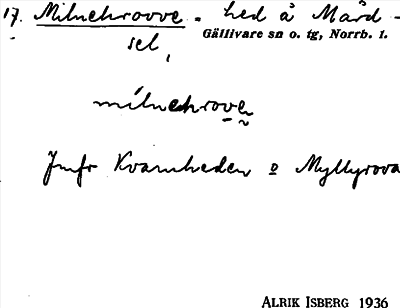 17. Milnehrovve - hed å Mård-
sel,
Gällivare sn o. tg, Norrb. l.
milnehrove
Jmfr Kvarnheden o Myllyrova
ALRIK ISBERG 1936